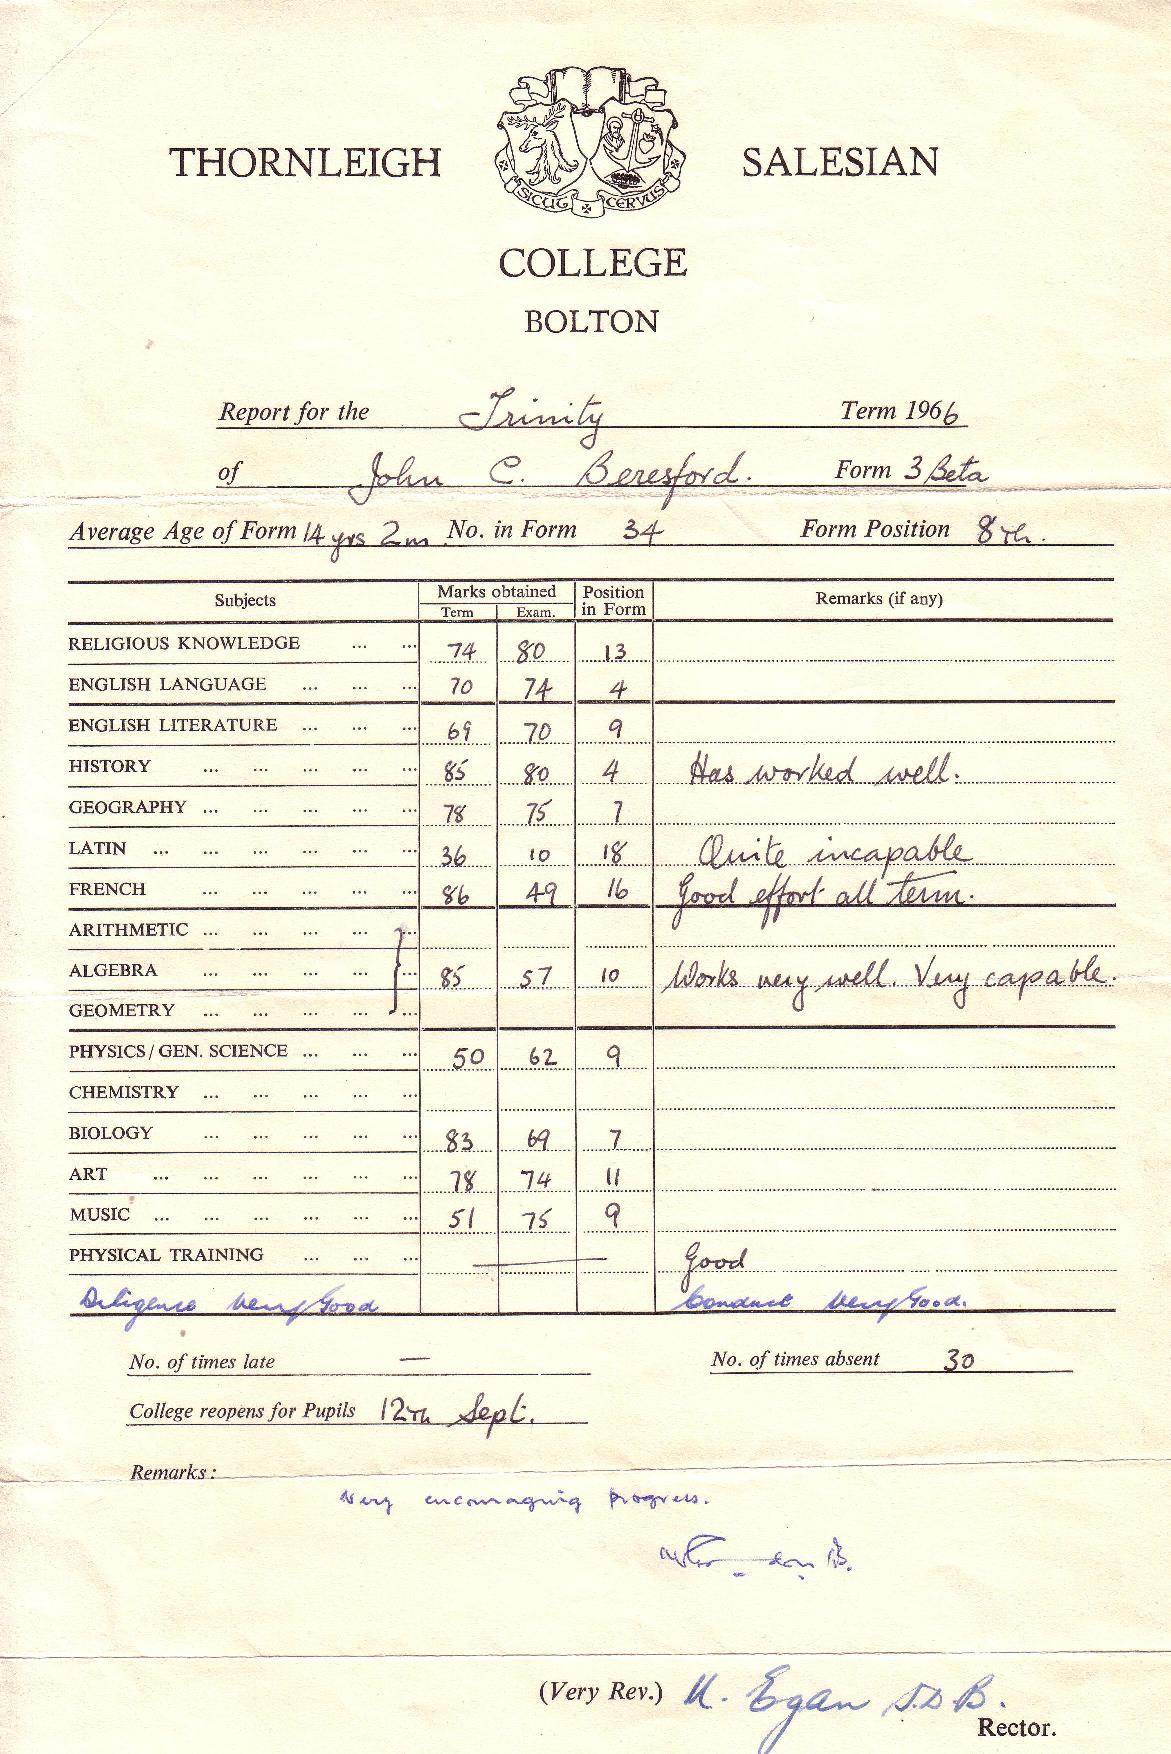 SICUT CERVUS
THORNLEIGH SALESIAN
COLLEGE
BOLTON
Report for the Trinity Term 1966
of John C. Beresford. Form 3 Beta
Average Age of Form 14 yrs 2m No. in Form 34 Form Position 8th.
Subjects Marks obtained Position in Form Remarks (if any)
Term Exam.
RELIGIOUS KNOWLEDGE ... ... 74 80 13
ENGLISH LANGUAGE ... ... ... 70 74 4
ENGLISH LITERATURE ... ... ... 69 70 9
HISTORY ... ... ... ... ... 85 80 4 Has worked well.
GEOGRAPHY ... ... ... ... ... 78 75 7
LATIN ... ... ... ... ... ... 36 10 18 Quite incapable
FRENCH ... ... ... ... ... 86 49 16 Good effort all term.
ARITHMETIC ... ... ... ... ...
ALGEBRA ... ... ... ... ... 85 57 10 Works very well. Very capable.
GEOMETRY ... ... ... ... ...
PHYSICS / GEN. SCIENCE ... ... ... 50 62 9
CHEMISTRY ... ... ... ... ...
BIOLOGY ... ... ... ... ... 83 69 7
ART ... ... ... ... ... ... 78 74 11
MUSIC ... ... ... ... ... ... 51 75 9
PHYSICAL TRAINING ... ... ... — Good
Diligence Very Good Conduct Very Good.
No. of times late — No. of times absent 30
College reopens for Pupils 12th Sept.
Remarks:
Very encouraging progress.
(Very Rev.) M. Egan S.D.B.
Rector.